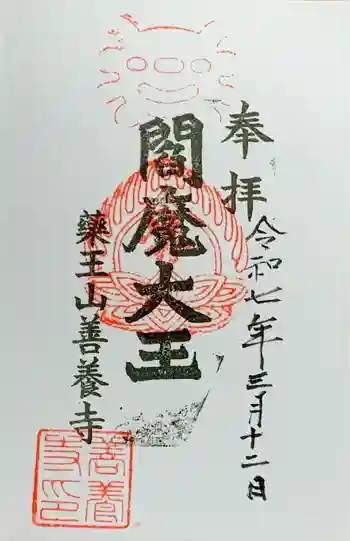 奉拝
令和七年三月十二日
閻魔大王
薬王山善養寺
善養
寺印